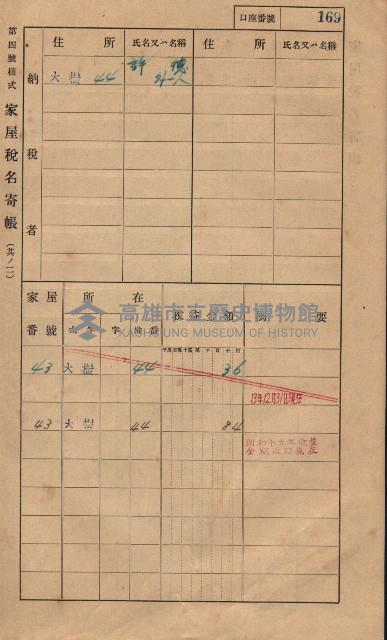 口座番號 169
第四號樣式 家屋稅名寄帳 (其ノ二)
納稅者
住所 氏名又ハ名稱 住所 氏名又ハ名稱
大樹 44 許 德
外一人
家屋番號 所在 收益金額 摘要
字 地番
高雄市立歷史博物館
KAOHSIUNG MUSEUM OF HISTORY
43 大樹 44 36
13年12月31日現在
43 大樹 44 84
昭和十五年收益
金額改訂